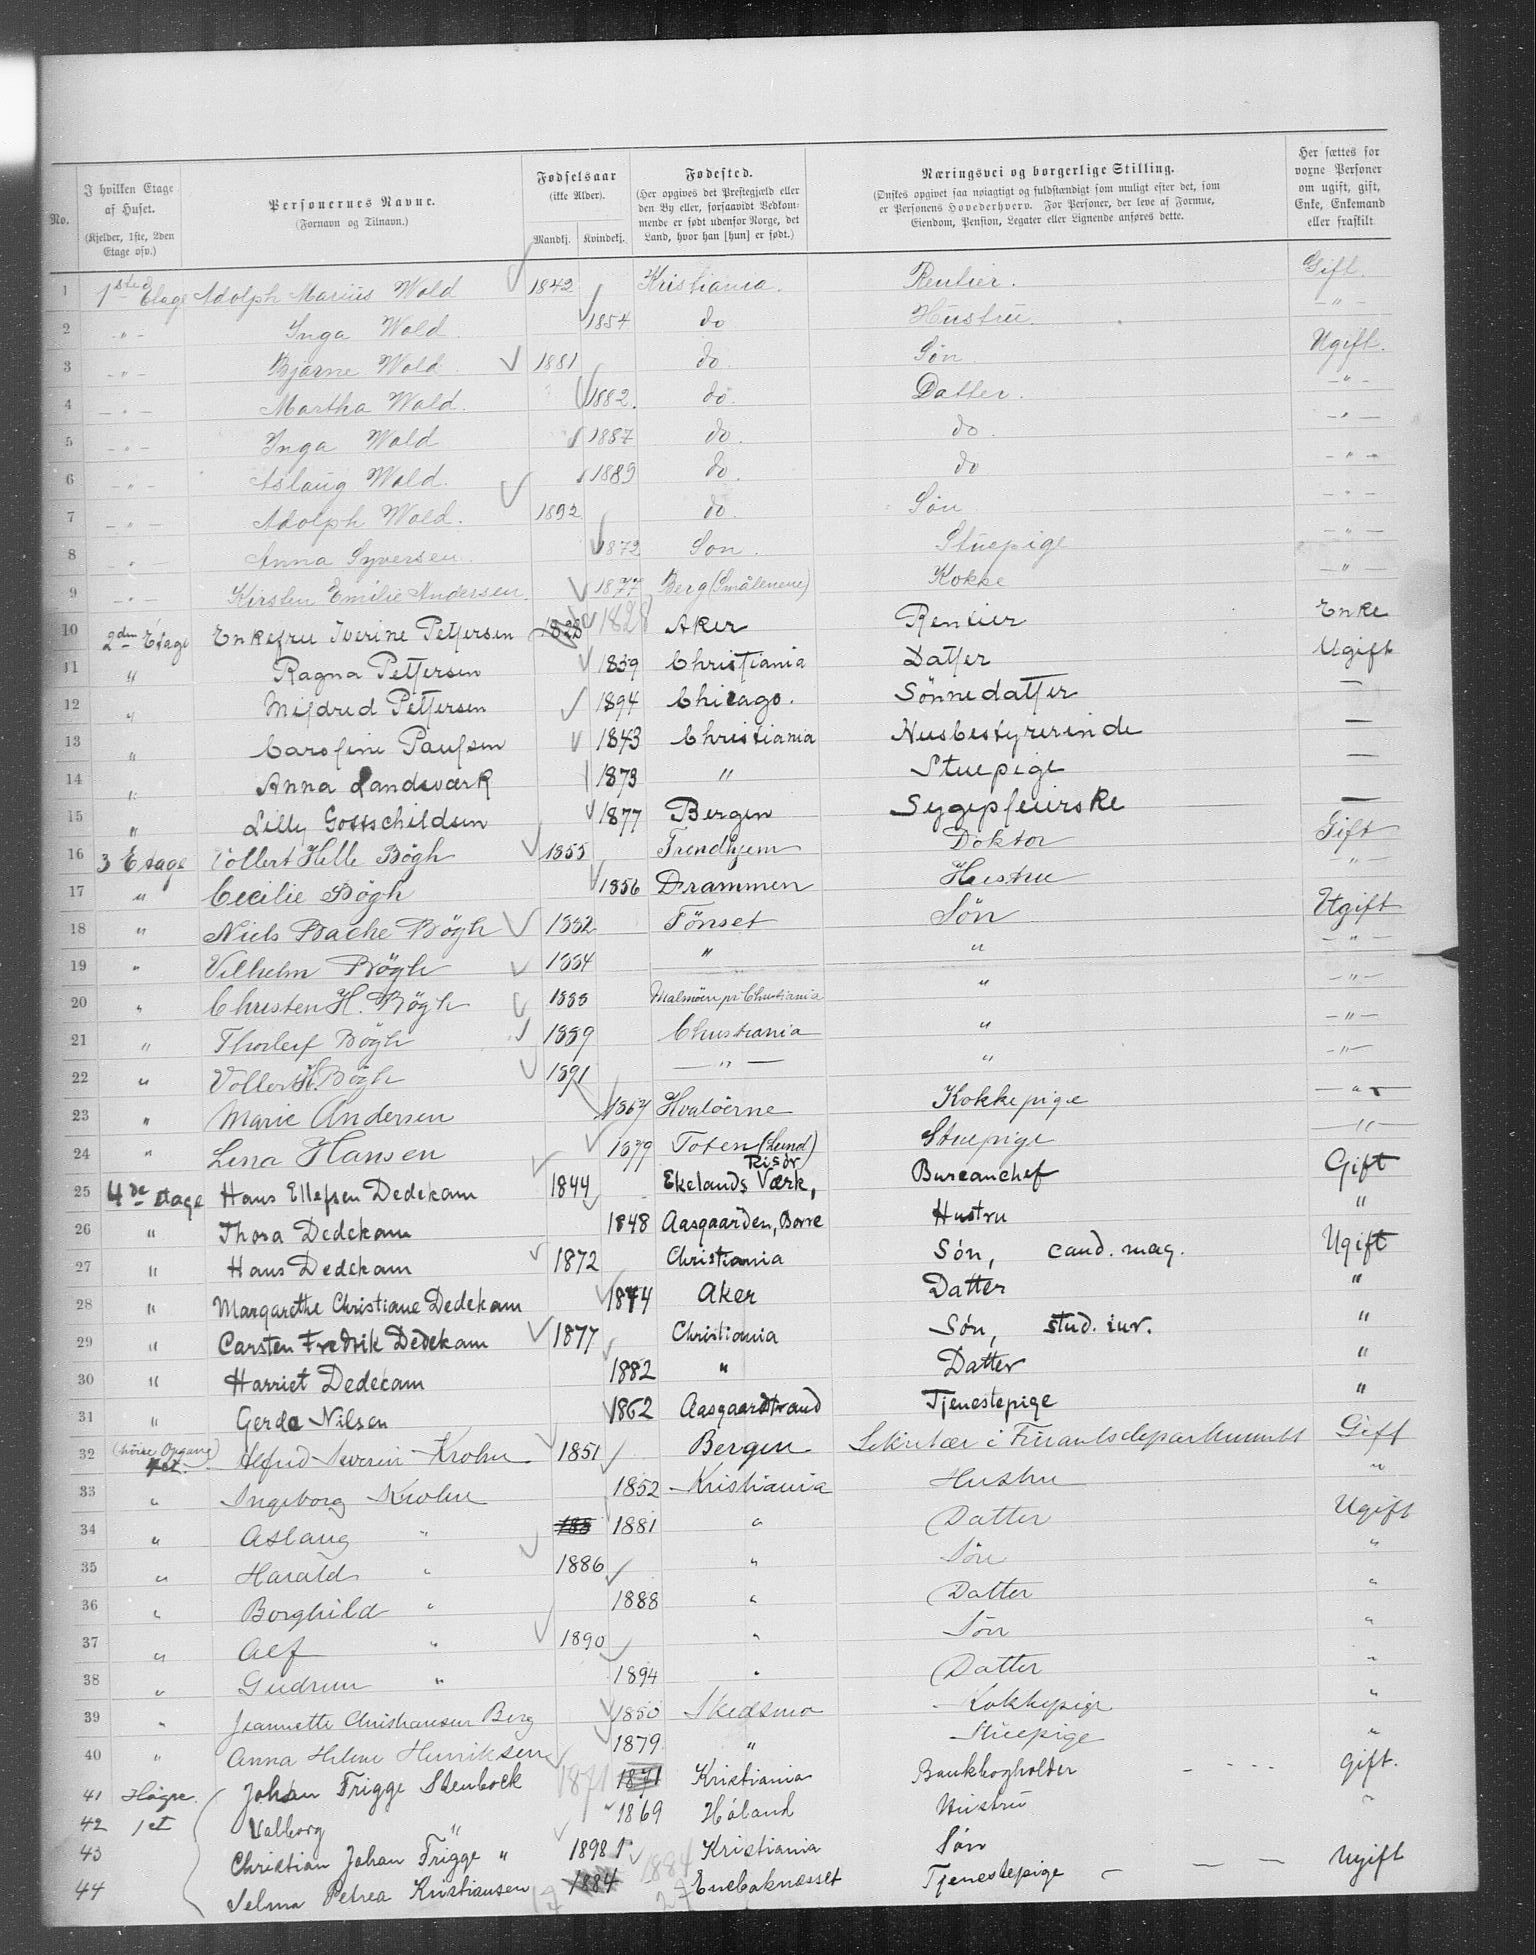 No.
I hvilken Etage af Huset. (Kjelder, 1ste, 2den Etage osv.)
Personernes Navne. (Fornavn og Tilnavn.)
Fødselsaar (ikke Alder). Mandkj. Kvindekj.
Fødested. (Her opgives det Prestegjæld eller den By eller, forsaavidt Vedkommende er født udenfor Norge, det Land, hvor han [hun] er født.)
Næringsvei og borgerlige Stilling. (Ønskes opgivet saa nøiagtigt og fuldstændigt som muligt efter det, som er Personens Hovederhverv. For Personer, der leve af Formue, Eiendom, Pension, Legater eller Lignende anføres dette.
Her sættes for voxne Personer om ugift, gift, Enke, Enkemand eller fraskilt
1 1ste Etage Adolph Marius Wold 1842 Kristiania. Rentier. Gift
2 - " - Inga Wold 1854 do Hustru. - " -
3 - " - Bjarne Wold 1881 do. Søn Ugift.
4 - " - Martha Wold. 1882. do. Datter. - " -
5 - " - Inga Wold 1887 do. do. - " -
6 - " - Aslaug Wold. 1889 do. do - " -
7 - " - Adolph Wold. 1892 do. Søn - " -
8 - " - Anna Syversen 1872 Son. Stuepige - " -
9 - " - Kirsten Emilie Andersen. 1877 Berg (Smålenene) Kokke - " -
10 2den Etage Enkefru Iverine Pettersen 1828 1828 Aker Rentier Enke
11 " Ragna Pettersen 1859 Christiania Datter Ugift
12 " Mildred Pettersen 1894 Chicago. Sönnedatter —
13 " Caroline Paulsen 1843 Christiania Husbestyrerinde —
14 " Anna Landsværk 1873 " Stuepige —
15 " Lilly Gottschildsen 1877 Bergen Sygepleierske —
16 3 Etage Vollert Hille Bögh 1855 Trondhjem Doktor Gift
17 " Cecilie Bögh 1856 Drammen Hustru "
18 " Niels Bache Bögh 1882 Tönset Sön Ugift
19 " Vilhelm Bögh 1884 " " - " -
20 " Christen H. Bögh 1888 Malmöen pr Christiania " - " -
21 " Thorleif Bögh 1889 Christiania " - " -
22 " Vollert H. Bögh 1891 — " — " - " -
23 " Marie Andersen 1867 Hvalöerne Kokkepige - " -
24 " Lina Hansen 1879 Toten (Lund) Stuepige - " -
25 4de Etage Hans Ellefsen Dedekam 1844 Ekelands Værk, Risør Bureauchef Gift
26 " Thora Dedekam 1848 Aasgaarden, Borre Hustru "
27 " Hans Dedekam 1872 Christiania Søn, cand. mag. Ugift
28 " Margarethe Christiane Dedekam 1874 Aker Datter "
29 " Carsten Fredrik Dedekam 1877 Christiania Søn, stud. iur. "
30 " Harriet Dedekam 1882 " Datter "
31 " Gerda Nilsen 1862 Aasgaardstrand Tjenestepige "
32 Alfred Severin Krohn 1851 Bergen Sekretær i Finantsdepartementet Gift
33 " Ingeborg Krohn 1852 Kristiania Hustru "
34 " Aslaug " 188 1881 " Datter Ugift
35 " Harald " 1886 " Søn "
36 " Borghild " 1888 " Datter "
37 " Alf " 1890 " Søn "
38 " Gudrun " 1894 " Datter "
39 " Jeannette Christiansen Berg 1850 Skedsmo Kokkepige "
40 " Anna Helene Henriksen 1879 " Stuepige "
41 Høgre. Johan Frigge Stenbock 1871 1871 Kristiania Bankbogholder - - - Gift.
42 1 et Valborg " 1869 Høland Hustru "
43 Christian Johan Frigge " 1898 Kristiania Søn
44 Selma Petrea Kristiansen 1884 1884 Enebaknesset Tjenestepige - — — Ugift